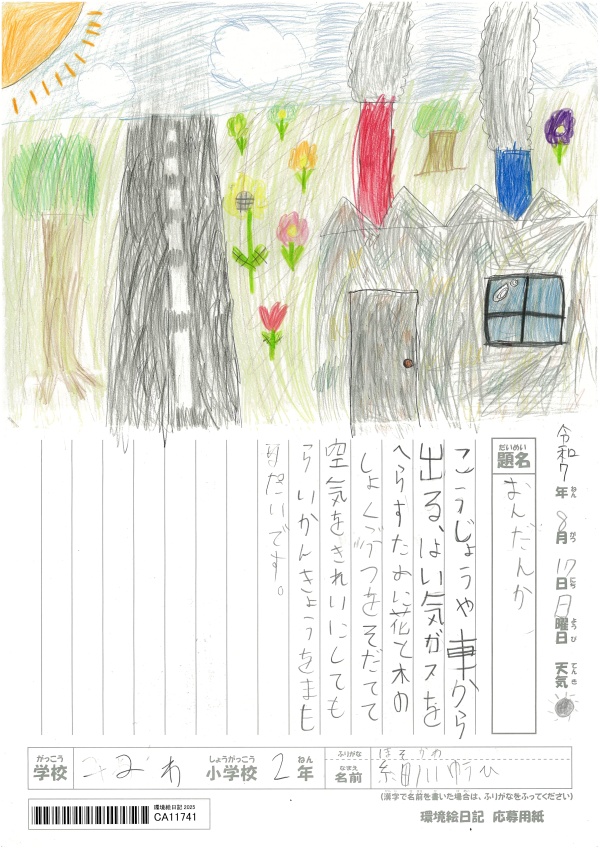 令和7年8月17日日曜日 天気
ねん がつ にち ようび てんき
だいめい
題名 おんだんか
こうじょうや車から
出る、はい気ガスを
へらすために花と木の
しょくぶつをそだてて
空気をきれいにしても
らいかんきょうをまも
りたいです。
がっこう しょうがっこう ねん
学校 小学校 2年
ふりがな ほそかわ
なまえ
名前 細川ゆうひ
(漢字で名前を書いた場合は、ふりがなをふってください)
環境絵日記 2025
CA11741
環境絵日記 応募用紙